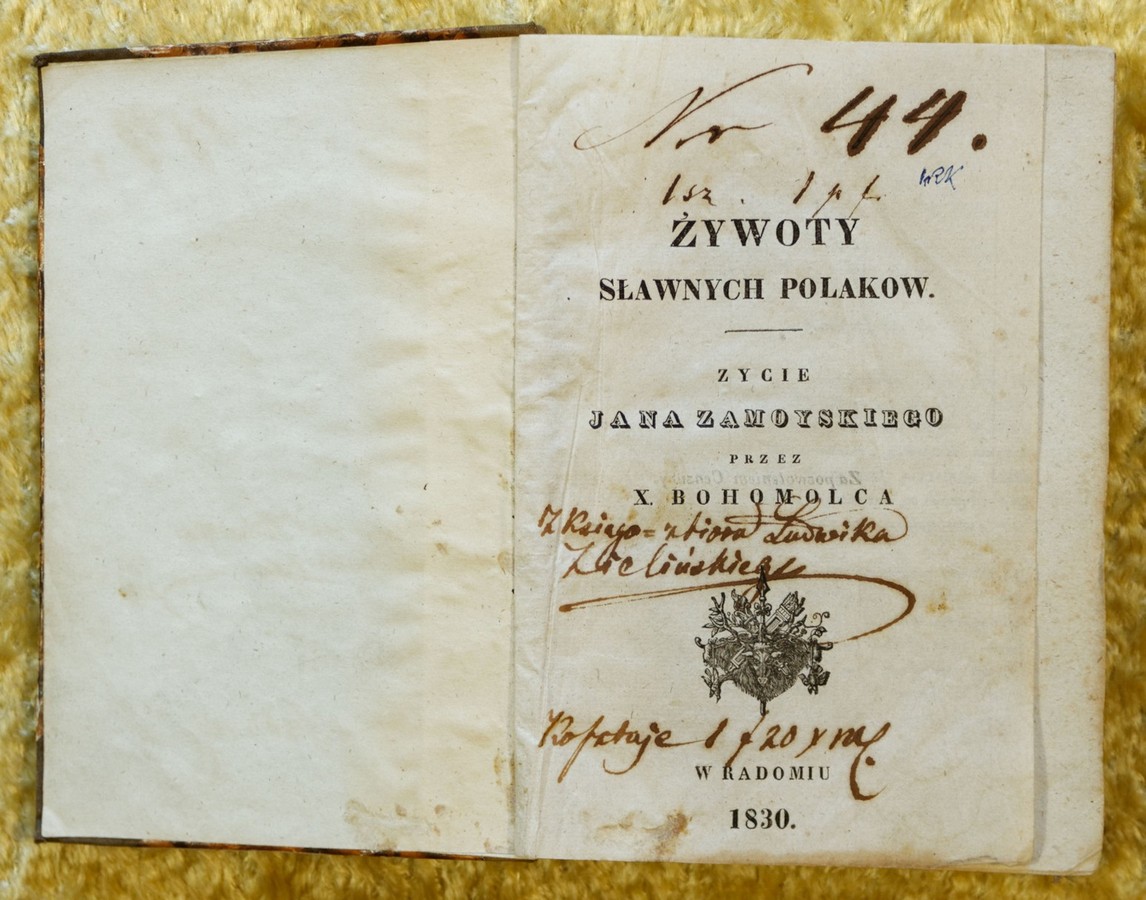 Nr 44.
1 sz. 1 p f.
ŻYWOTY
SŁAWNYCH POLAKOW.
ZYCIE
JANA ZAMOYSKIEGO
PRZEZ
X. BOHOMOLCA
Z Księgo=zbioru Ludwika
Zielińskiego
Kosztuje 1 f 20 x
W RADOMIU
1830.